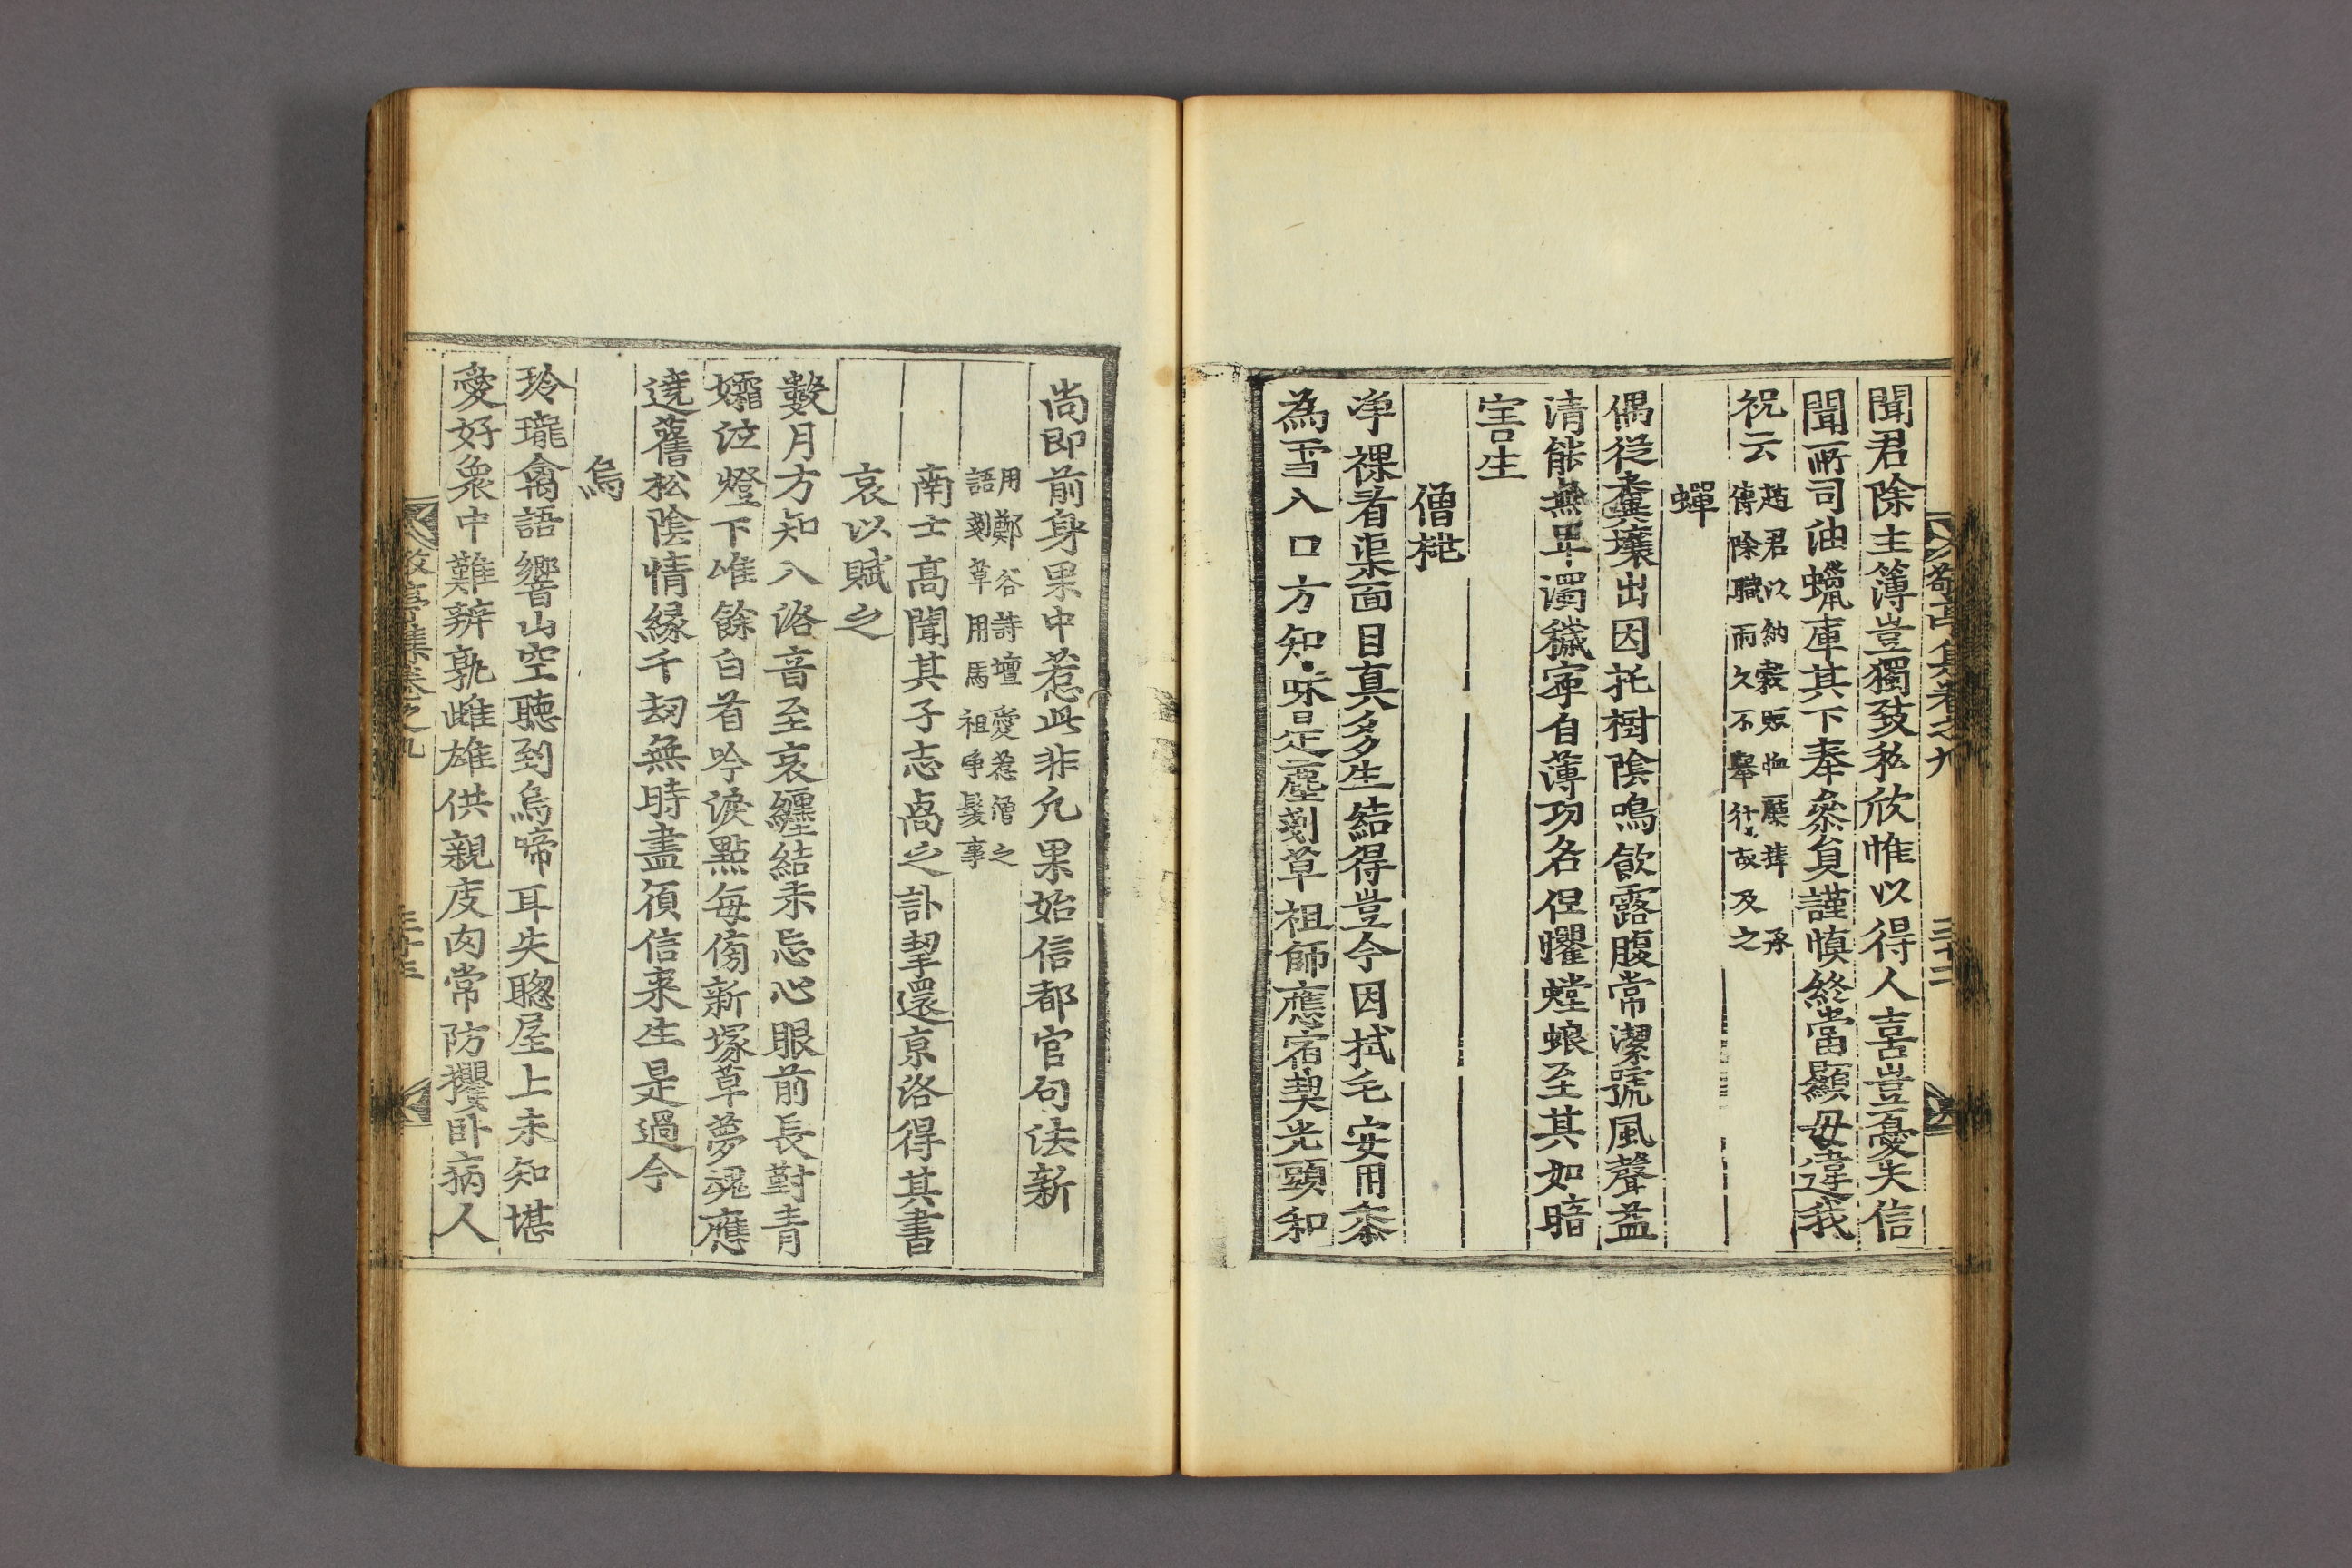 聞君除主簿豈獨致私欣惟以得人喜豈憂失信
聞所司油蠟庫其下奉叅負謹慎終當顯毋違我
祝云
趙君以納穀賑恤厪拜承
傳除職而久不舉行故及之
蟬
偶從糞壤出因托樹陰鳴飮露腹常潔號風聲益
清能無卑濁穢寧自薄功名但矍螳蜋至其如暗
害生
僧桃
净裸看渠面目真多生結得豈今因拭毛安用黍
為雪入口方知味是塵剗草祖師應宿契光頭和
尚即前身果中惹此非凢果始信都官句法新
用鄭谷詩壇愛惹僧之
語剗草用馬祖净髮事
南士高聞其子志卨之訃挈還京洛得其書
哀以賦之
數月方知入洛音至哀纏結未忘心眼前長對青
孀泣燈下唯餘白首吟淚點每傍新塚草夢魂應
遶舊松陰情緣千刼無時盡須信来生是過今
烏
玲瓏禽語響山空聽到烏啼耳失聦屋上未知堪
愛好衆中難辨孰雌雄供親庋肉常防攫卧病人
敬亭集卷之九
三十二
敬亭集卷之九
三十三